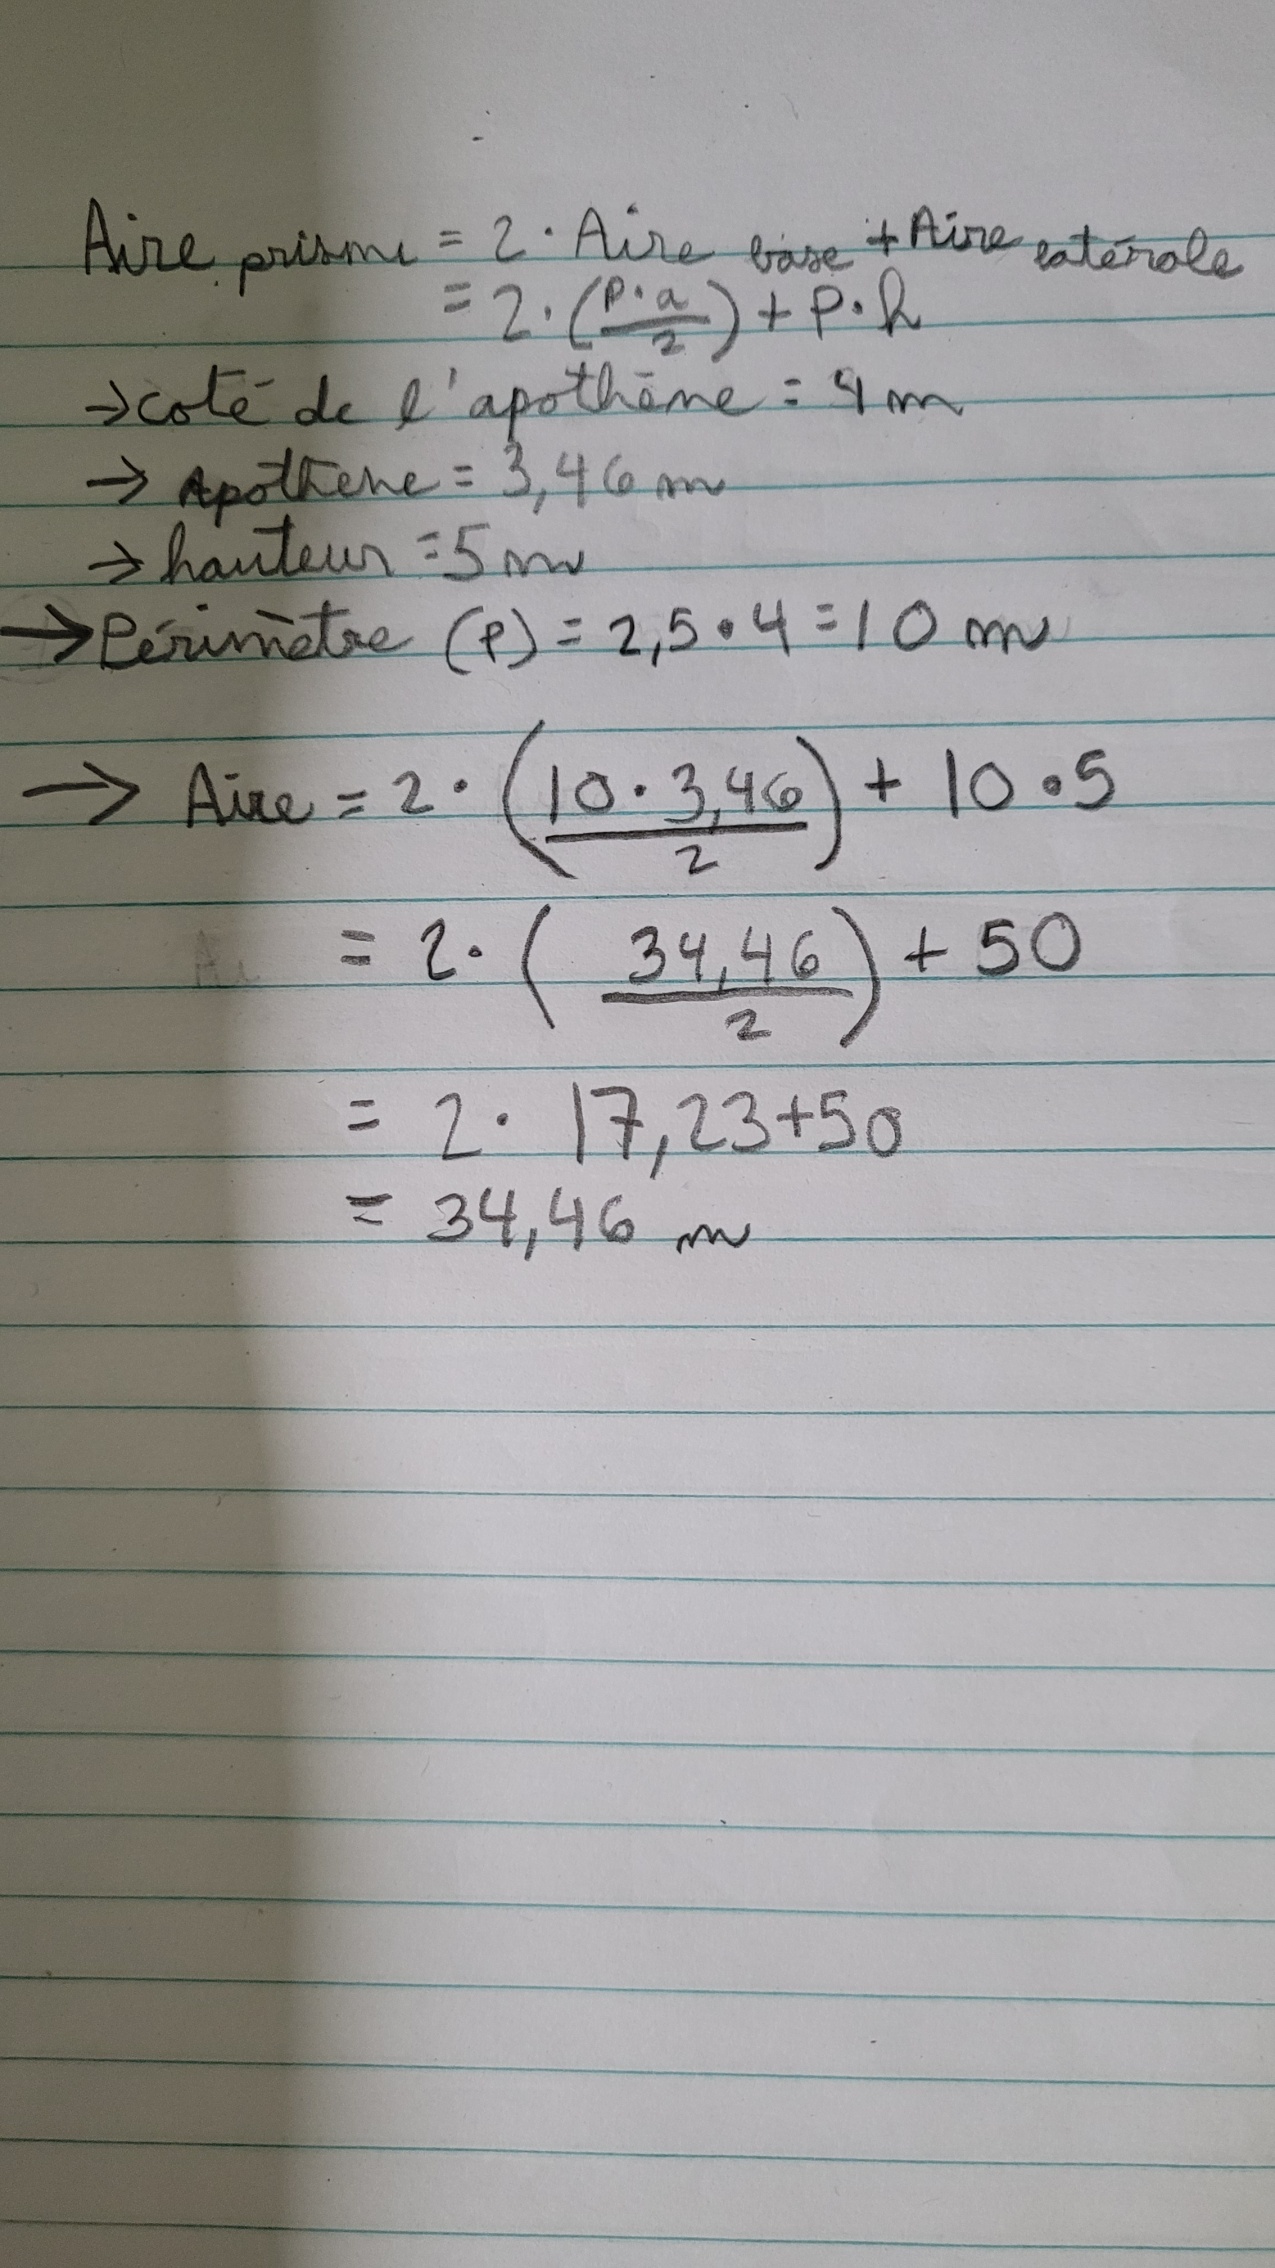 Aire prisme = 2 · Aire base + Aire latérale
= 2 · (P · a / 2) + P · h
→ coté de l'apothème = 4 m
→ Apothene = 3,46 m
→ hauteur = 5 m
→ Périmètre (P) = 2,5 · 4 = 10 m
→ Aire = 2 · (10 · 3,46 / 2) + 10 · 5
= 2 · (34,46 / 2) + 50
= 2 · 17,23 + 50
= 34,46 m